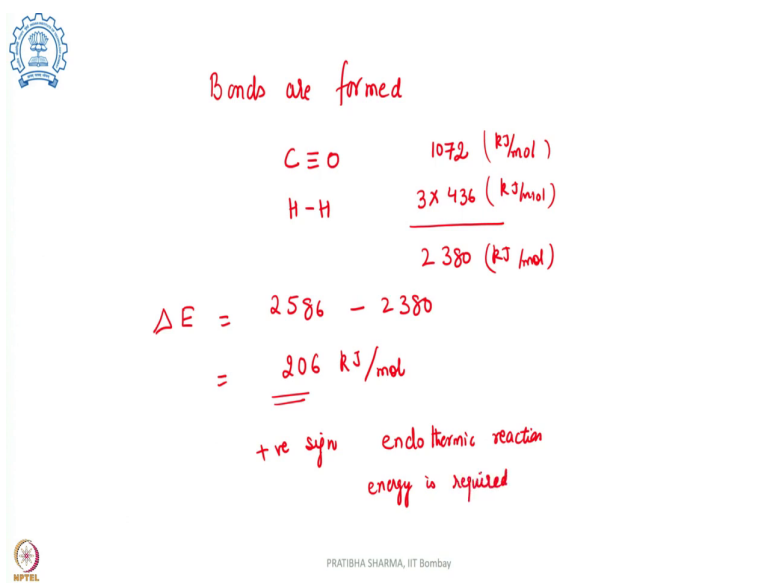 Bonds are formed
C≡O 1072 (kJ/mol)
H-H 3×436 (kJ/mol)
2380 (kJ/mol)
ΔE = 2586 - 2380
= 206 kJ/mol
+ve sign endothermic reaction
energy is required
PRATIBHA SHARMA, IIT Bombay
NPTEL